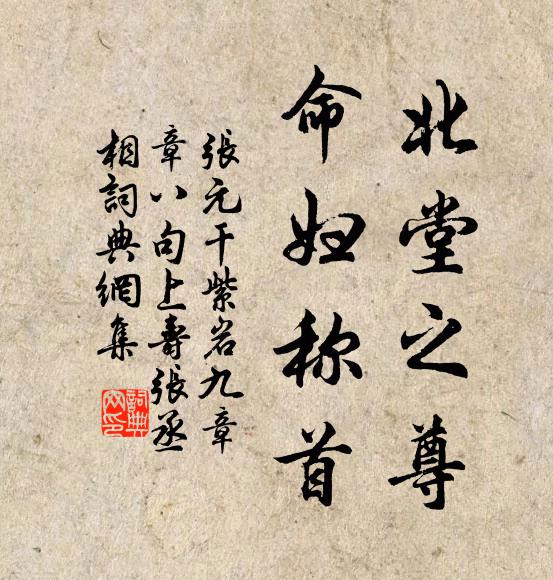 北堂之尊
命妇称首
張元干紫岩九章
章八句上壽張丞
相詞典網集
詞典
网印